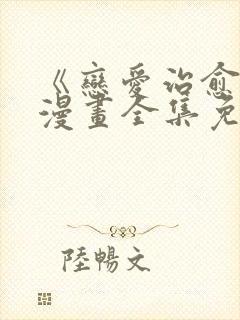 《戀愛治愈
漫畫全集免
陸暢文